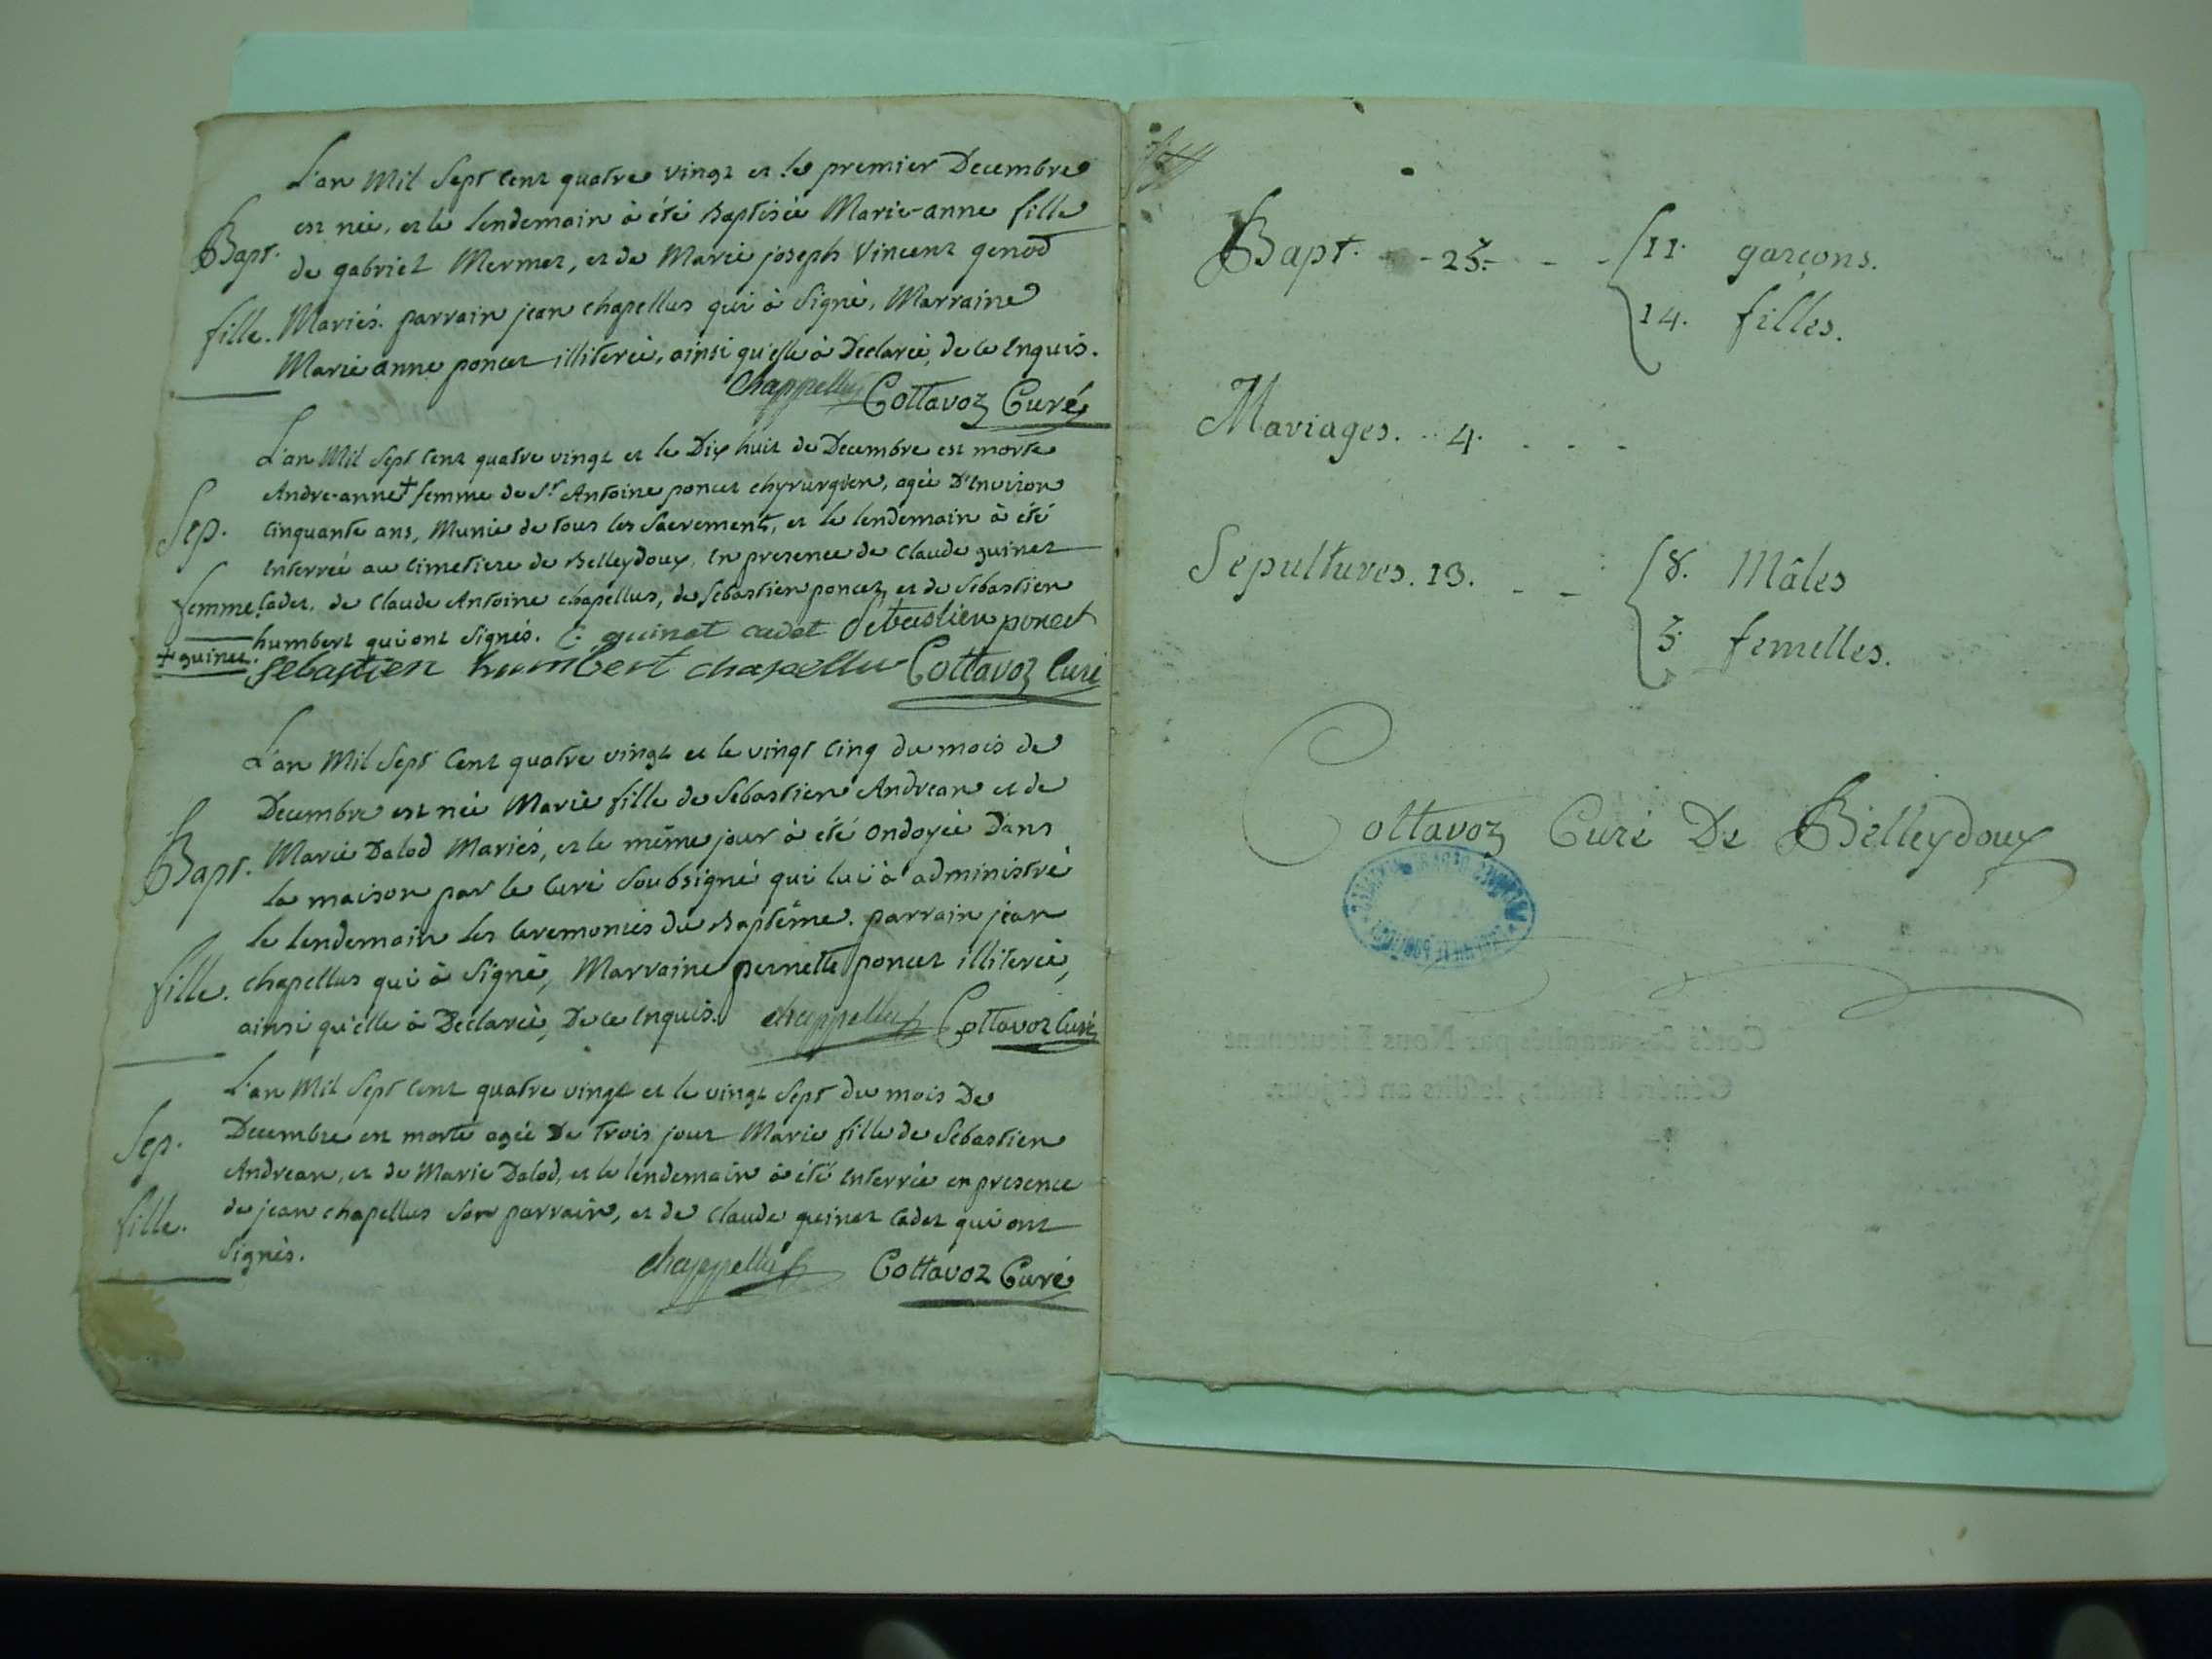 L'an Mil Sept Cent quatre vingt et le premier Decembre
est née, et le lendemain à été Baptisée Marie-anne fille
Bapt.
de gabriel Mermet, et de Marie joseph Vincent genod
fille. Mariés. parrain jean chapellus qui à Signé, Marraine
Marie anne poncet illiterée, ainsi qu'elle à Declarée, de ce Enquis.
Chappellus Cottavoz Curé
L'an Mil Sept Cent quatre vingt et le Dix huit de Decembre est morte
Andre-anne + femme de Sr Antoine poncet chyrurgien, agée D'Environ
Sep. Cinquante ans, Munie de tous les Sacrements, et le lendemain à été
Enterrée au Cimetiere de Belleydoux, En presence de Claude guinet
femme. Cadet, de Claude Antoine chapellus, de Sebastien poncet, et de Sebastien
humbert qui ont Signés. C. guinet cadet Sebastien poncet
+ guinet. Sebastien humbert chapellu Cottavoz Curé
L'an Mil Sept Cent quatre vingt et le vingt Cinq du mois de
Decembre est née Marie fille de Sebastien Andrean et de
Bapt. Marie Dalod Mariés, et le même jour à été Ondoyée Dans
la maison par le Curé Soubsigné qui lui à administré
le lendemain les Ceremonies du Baptême. parrain jean
fille. chapellus qui à Signé, Marraine pernette poncet illiterée,
ainsi qu'elle à Declarée, De ce Enquis. chappellus Cottavoz Curé
L'an Mil Sept Cent quatre vingt et le vingt Sept du mois De
Sep. Decembre est morte agée De trois jour Marie fille de Sebastien
Andrean, et de Marie Dalod, et le lendemain à été Enterrée en presence
fille. de jean chapellus Son parrain, et de Claude guinet Cadet qui ont
Signés.
chappellus Cottavoz Curé
Bapt. - - 25. - - 11. garçons.
14. filles.
Mariages. - 4. - - -
Sepultures. 13. - - 8. Mâles
5. femelles.
Cottavoz Curé De Belleydoux